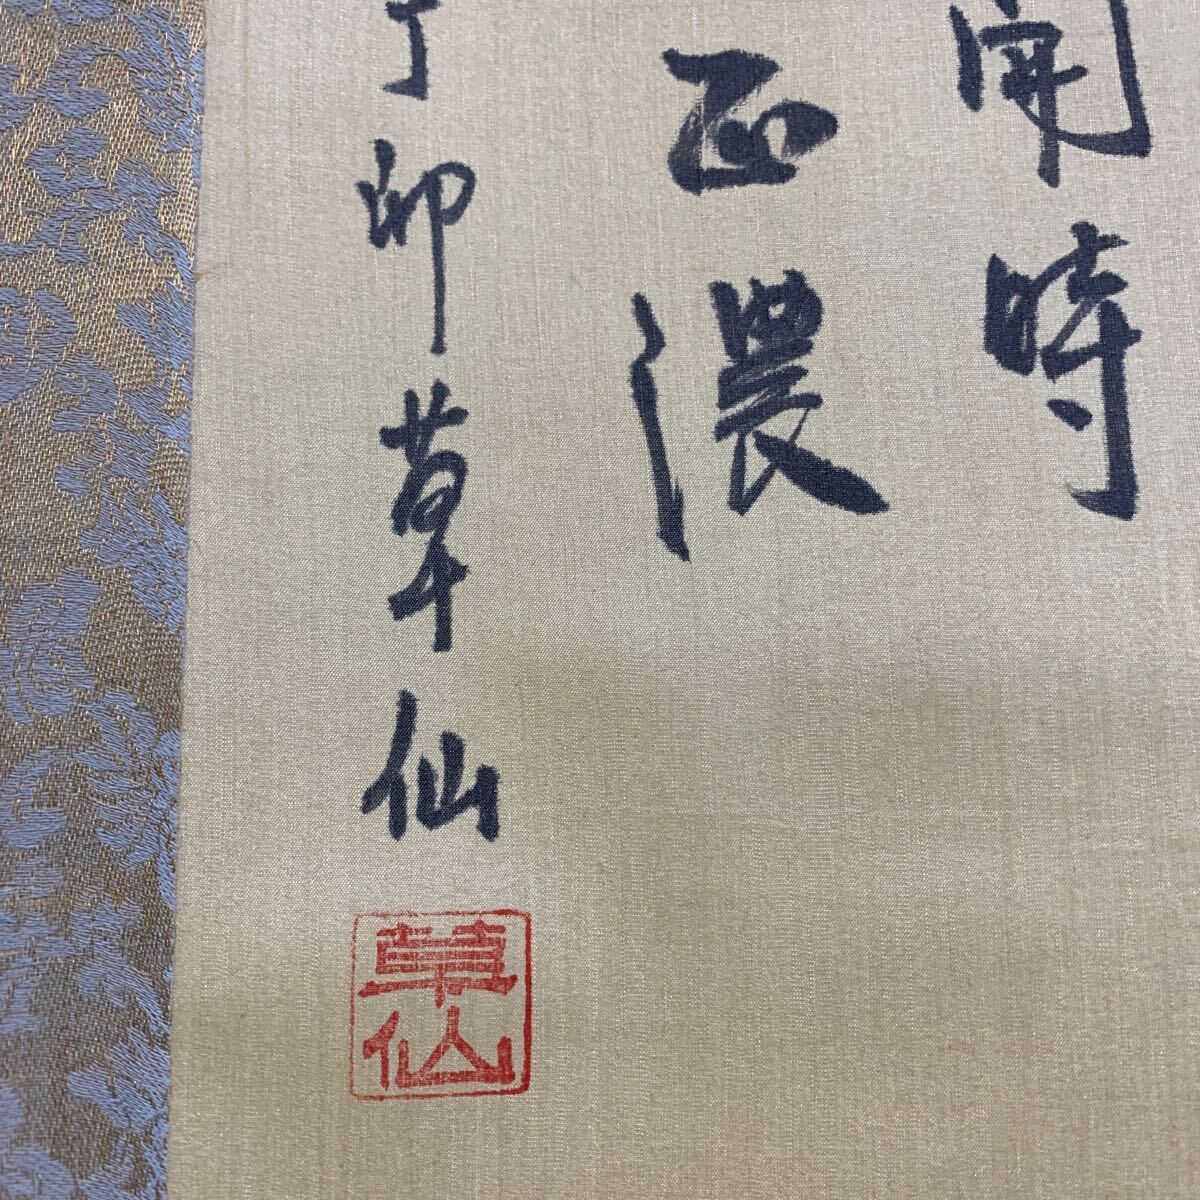 開時
正濃
丁卯草仙
草仙